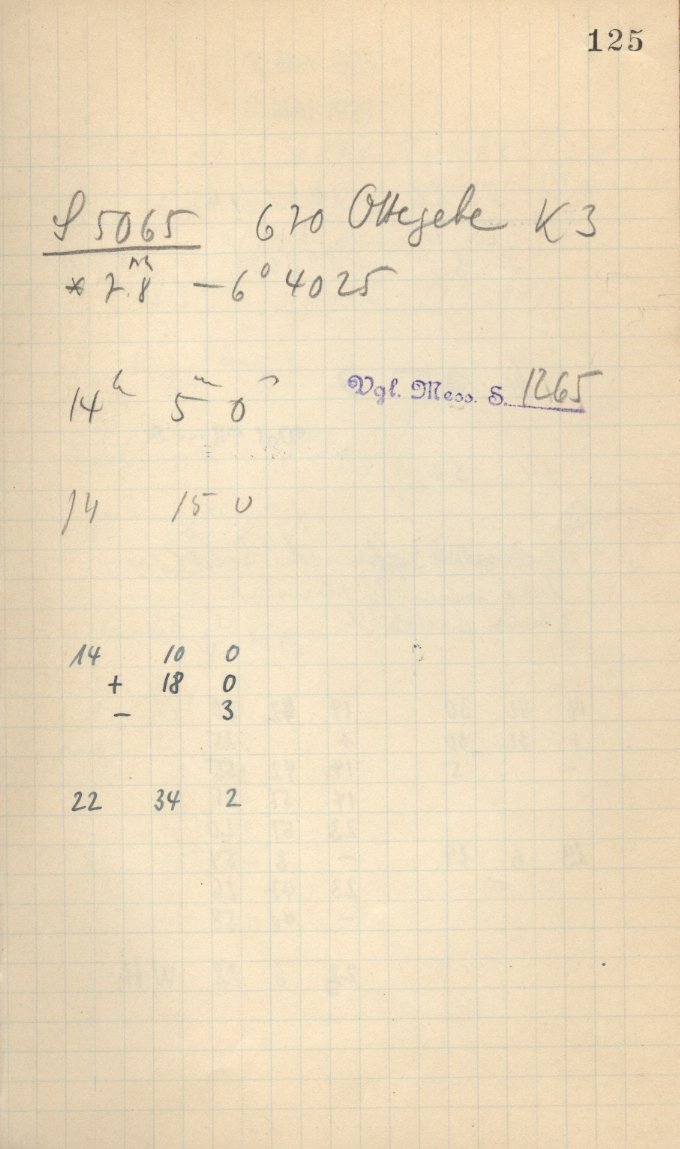 125
S 5065 670 Ottegebe K 3
* 7.8ᵐ − 6° 40 25
14ʰ 5ᵐ 0ˢ Vgl. Mess. S. 1265
14 15 0
14 10 0
+ 18 0
− 3
22 34 2